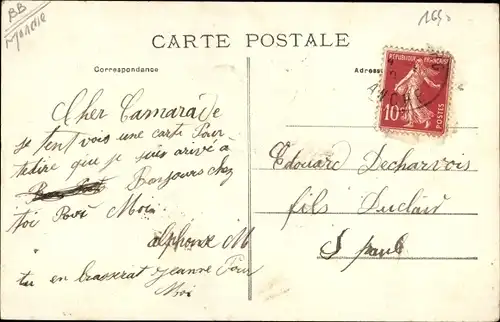 BB
1650
CARTE POSTALE
Correspondance
Adresse
REPUBLIQUE FRANÇAISE
10
POSTES
Cher Camarade
je tent vois une carte Pour
te dire que je suis arivé a
Bonjours chez
toi Pour Moi
alphonse M
tu en brasserat jeanne Pour
Moi
Edouard Decharvois
fils Duclair
S paul